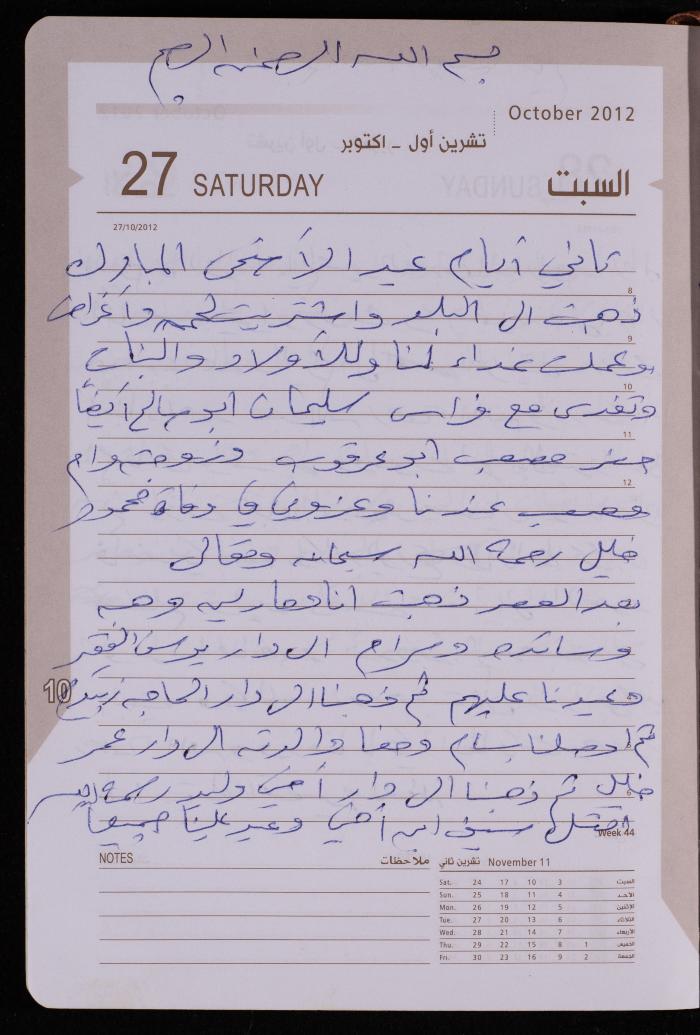 بسم الله الرحمن الرحيم
October 2012
تشرين أول - اكتوبر
27 SATURDAY السبت
27/10/2012
ثاني أيام عيد الأضحى المبارك
8
ذهبت الى البلد واشتريت لحمه وأغراض
9
وعملت غداء لنا وللأولاد والبنات
10
وتغدى مع فراس سليمان ابو صالح أيضاً
11
حضر مصعب ابو عرقوب وزوجته وام
12
مصعب عندنا وعزوني في وفاة محمود
خليل رحمة الله سبحانه وتعالى
بعد العصر ذهبت انا وهبه
وسائده ومرام الى دار يونس الفقير
10
وعيدنا عليهم ثم ذهبنا الى دار الحاجه
ثم اوصلنا بسام وحفا والدته الى دار عمر
خليل ثم ذهبنا الى دار أخي وليد رحمه الله
6
سيف ابن أخي وعيد علينا جميعاً
Week 44
NOTES ملاحظات
November 11 تشرين ثاني
Sat. 24 17 10 3 السبت
Sun. 25 18 11 4 الأحد
Mon. 26 19 12 5 الاثنين
Tue. 27 20 13 6 الثلاثاء
Wed. 28 21 14 7 الأربعاء
Thu. 29 22 15 8 1 الخميس
Fri. 30 23 16 9 2 الجمعة